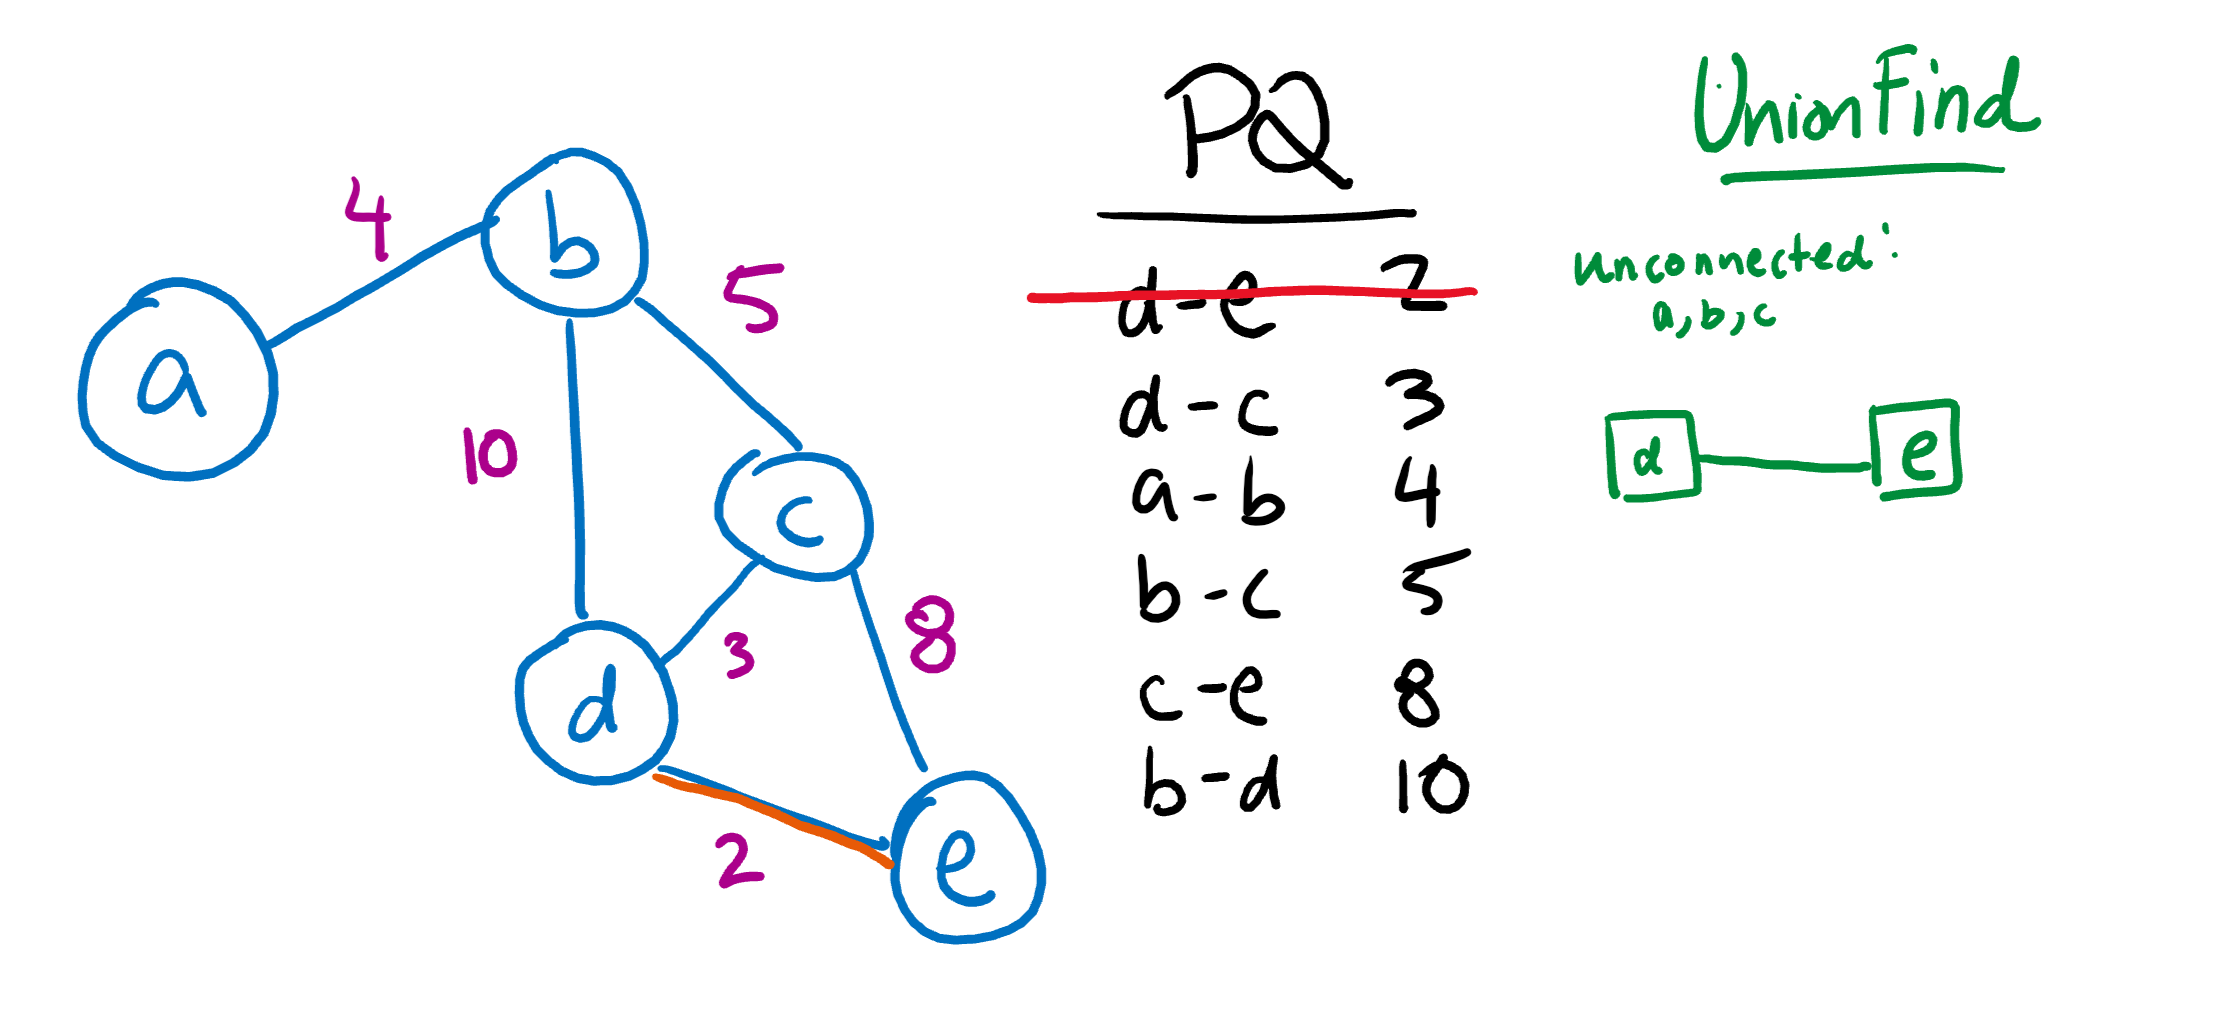 a
b
c
d
e
4
5
10
3
8
2
PQ
d-e 2
d-c 3
a-b 4
b-c 5
c-e 8
b-d 10
UnionFind
unconnected:
a,b,c
d
e